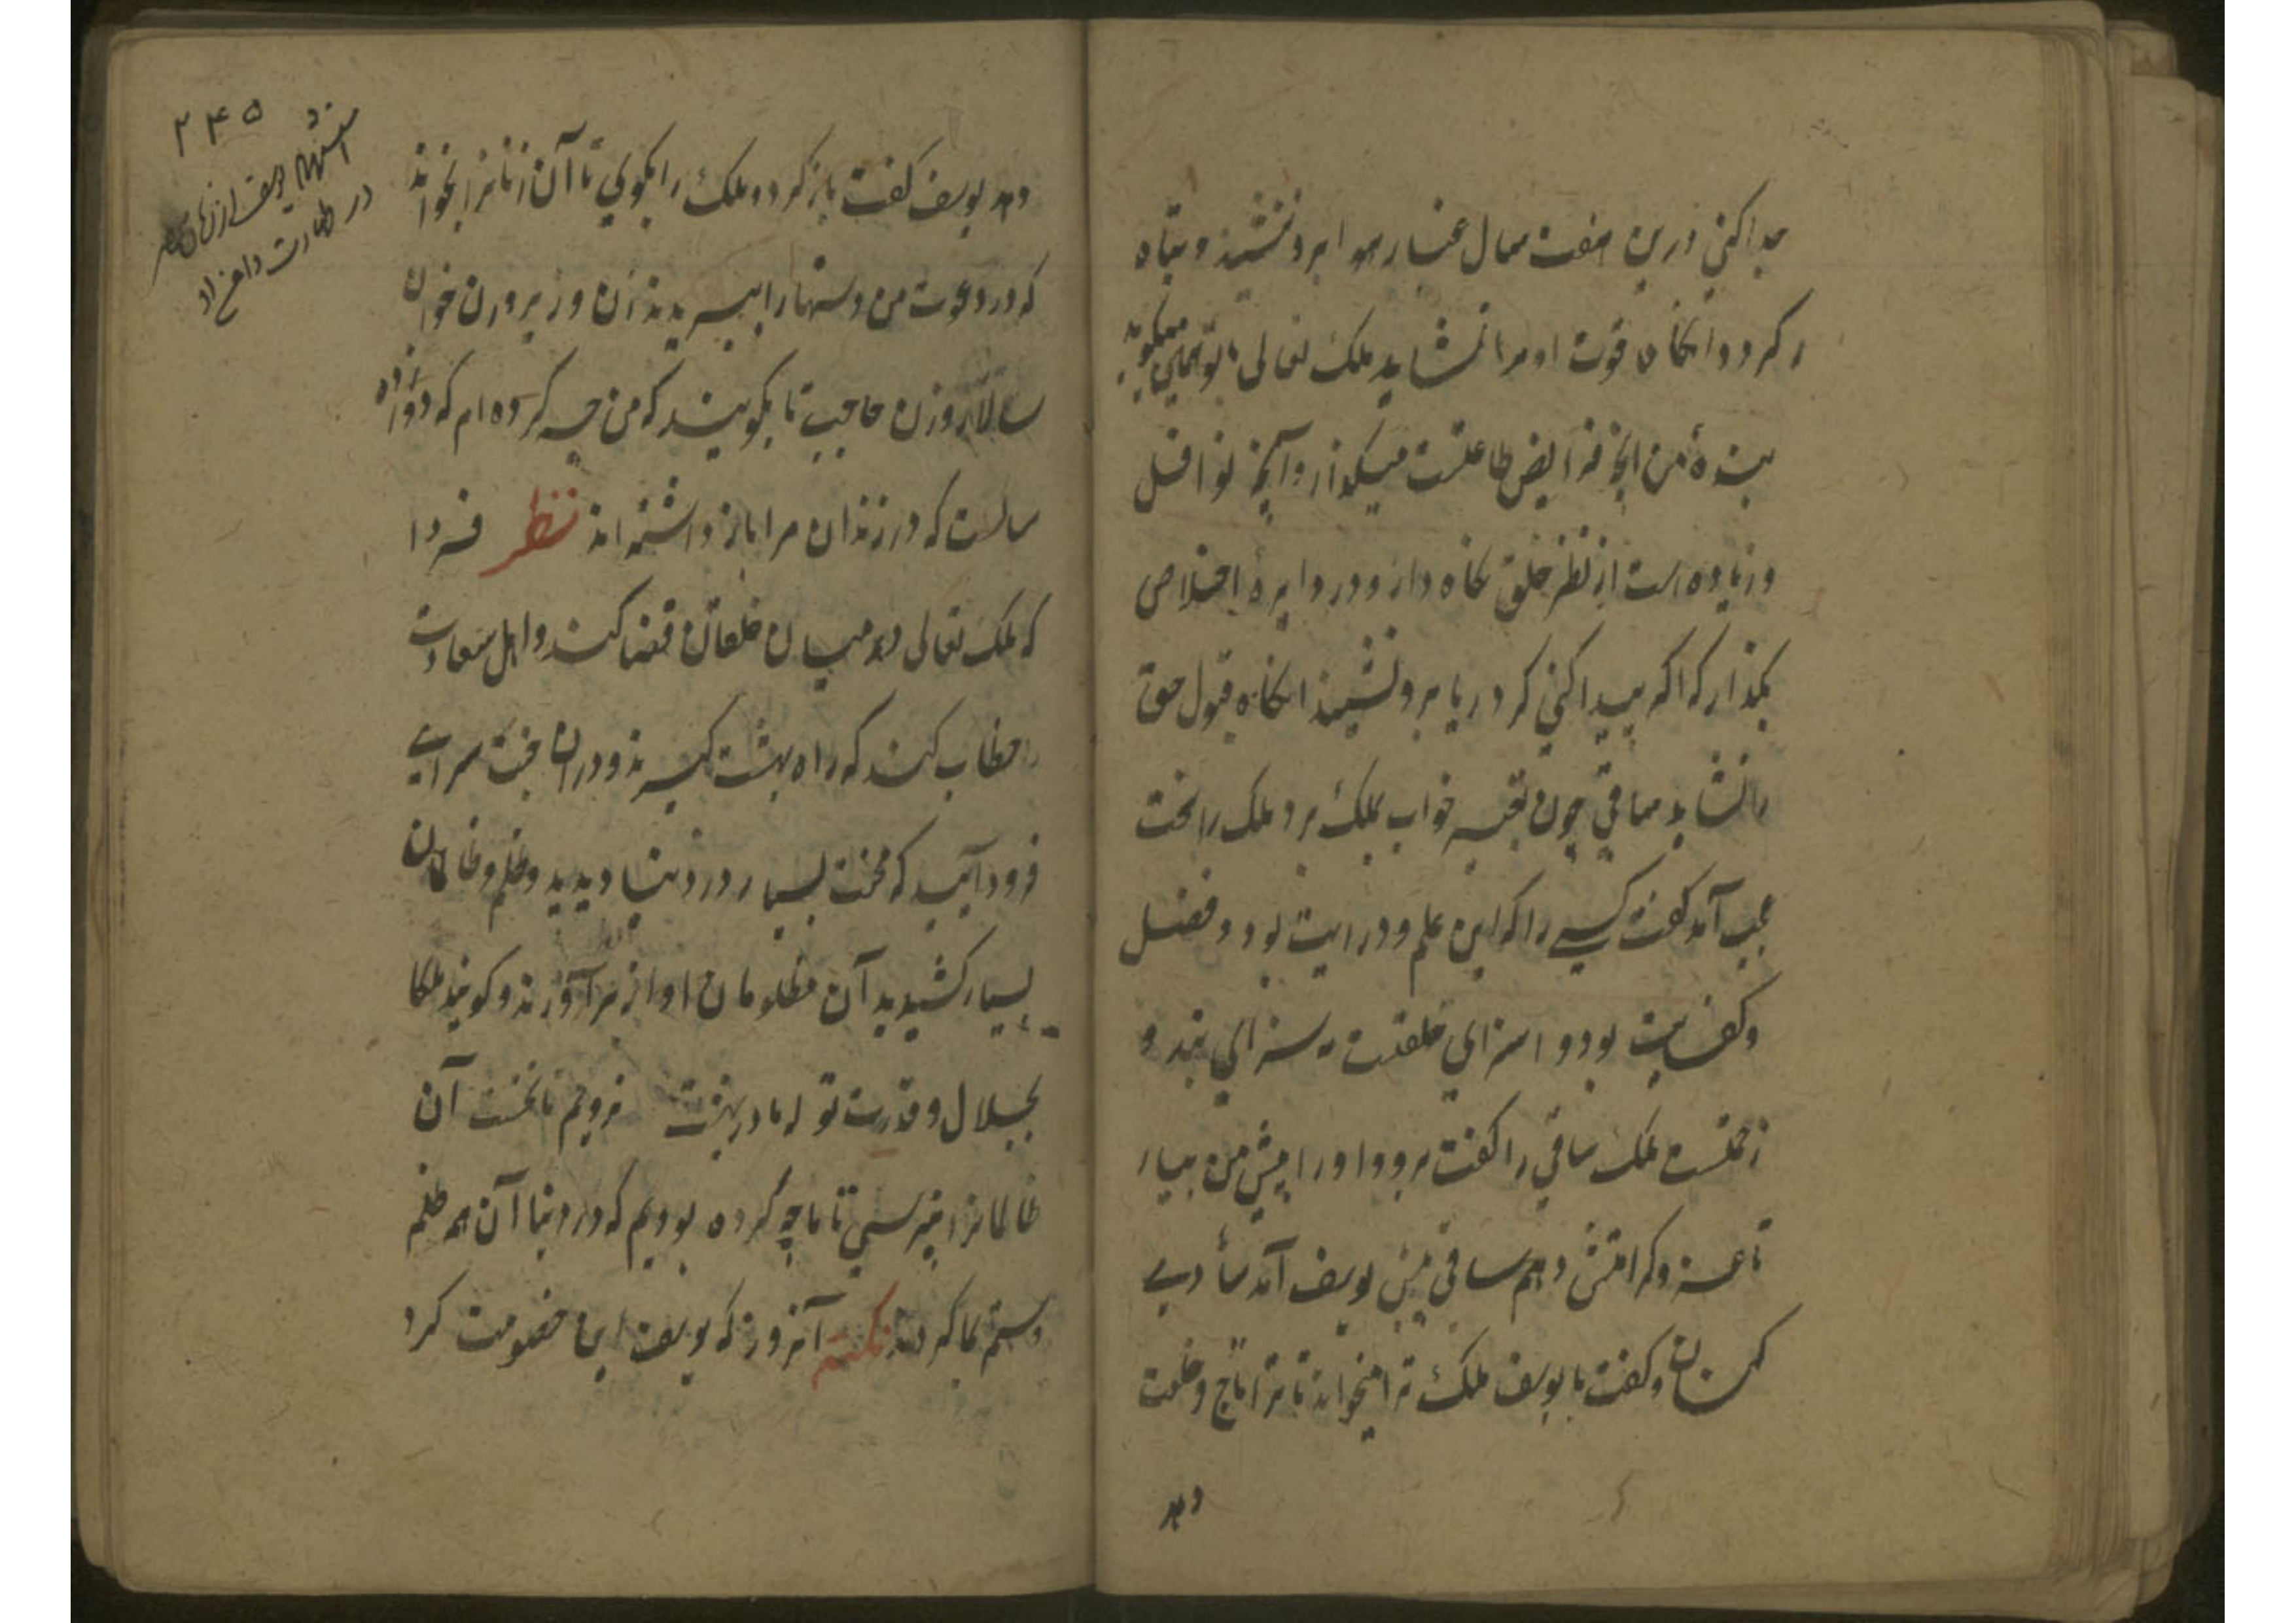 جدا کنی درین هفت سال غبار هوا برو ننشیند و تباه
نکردد و انکاه قوت او مرا نشاید ملک تعالی با تو همین میکوید
بندهٔ من انچ فرایض طاعتست میکذار و آنچ نوافل
و زیاده است از نظر خلق نکاه دار و در دایرهٔ اخلاص
بکذار که اکر پیدا کنی کرد ریا برو نشیند انکاه قبول حق
را نشاید ساقی چون تعبیر خواب بملک برد ملک را سخت
عجب آمد کفت کسی را که این علم و درایت بود و فضل
و کفایت بود و اسزای خلعتست نه سزای بند و
زحمتست ملک ساقی را کفت برو و او را پیش من بیار
تا عز و کرامتش دهم ساقی پیش یوسف آمد شادی
کنان و کفت یا یوسف ملک ترا میخواند تا ترا تاج و خلعت
دهد
۲۴۵
استفهام یوسف از زنان مصر
در طهارت دامن خود
دهد یوسف کفت باز کرد و ملک را بکوی تا آن زنانرا بخواند
که در دعوت من دستها را ببریدند زن وزیر و زن خوان
سالار و زن حاجب تا بکویند که من چه کرده ام که دوازده
سالست که در زندان مرا باز داشته اند نظر فردا
که ملک تعالی در میان خلقان قضا کند و اهل سعادت
را خطاب کند که راه بهشت کیرند و در ان جنت سرای
فرود آیید که محنت بسیار در دنیا دیدید و ظلم ظالمان
بسیار کشیدید آن مظلومان اواز برآورند و کویند ملکا
بجلال و قدرت تو که ما در بهشت نرویم تا نخست آن
ظالمانرا نپرسی تا ما چه کرده بودیم که در دنیا آن همه ظلم
و ستم بما کردند نکته آنروز که یوسف این خصومت کرد